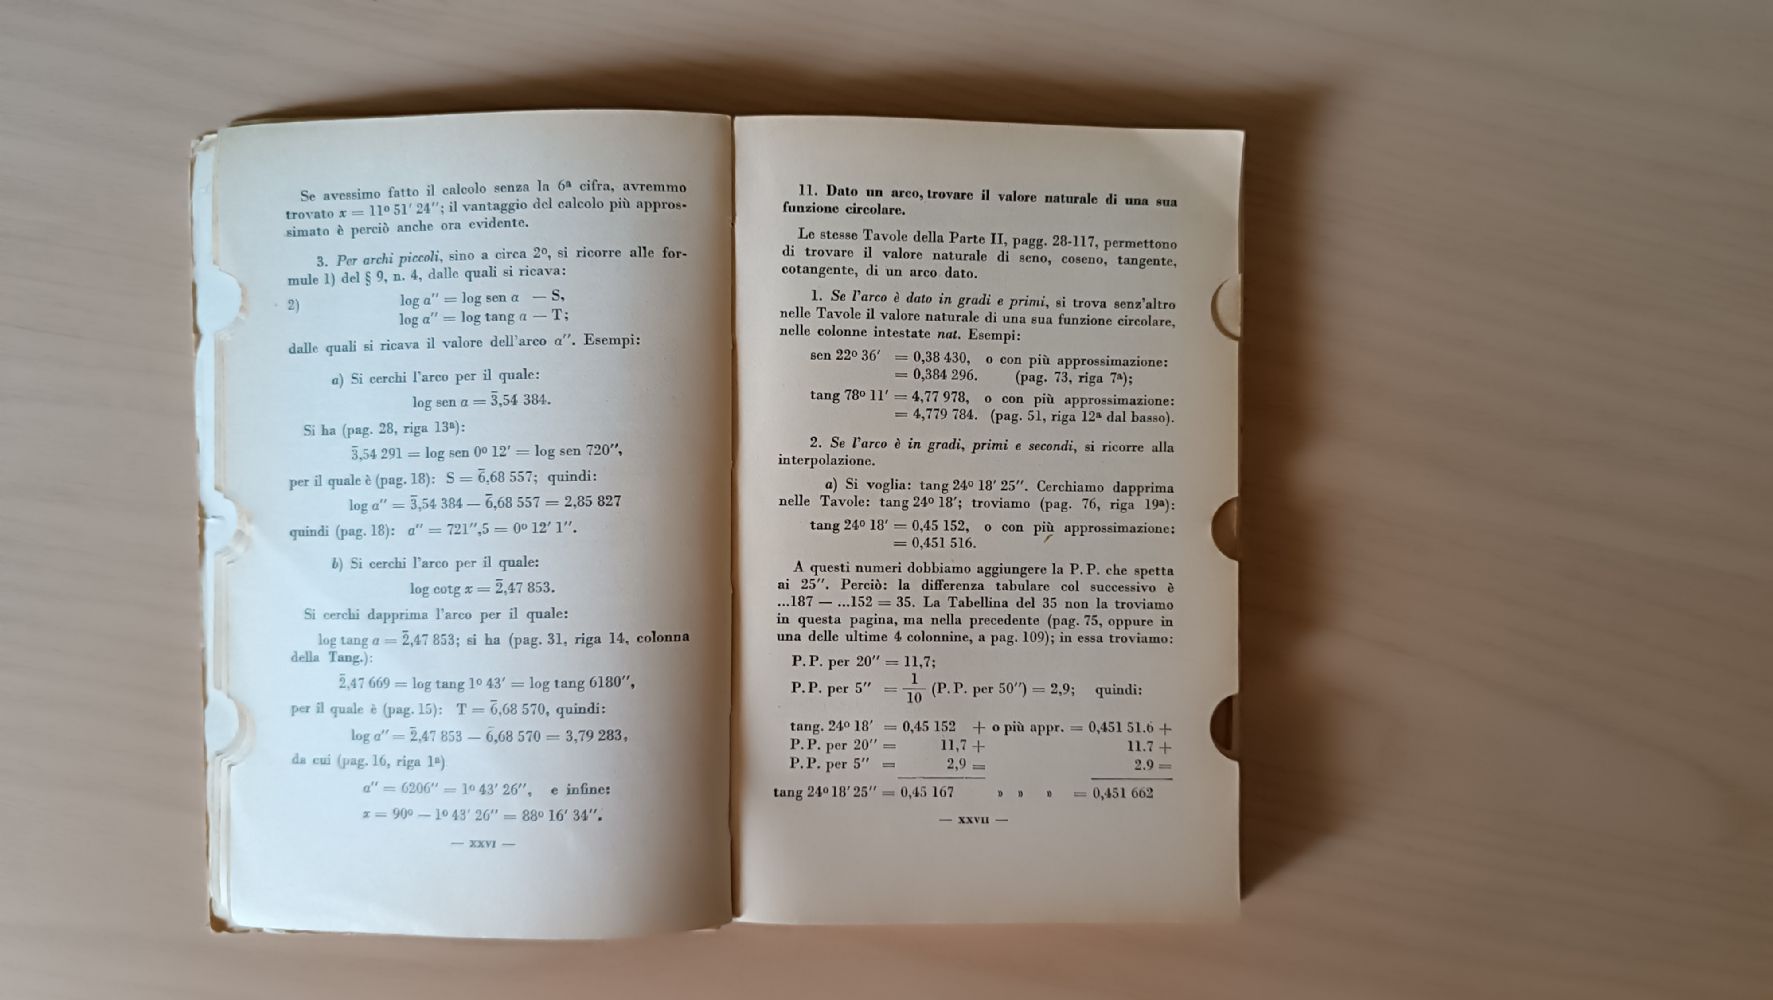 Se avessimo fatto il calcolo senza la 6ª cifra, avremmo
trovato x = 11º 51′ 24″; il vantaggio del calcolo più appros-
simato è perciò anche ora evidente.
3. Per archi piccoli, sino a circa 2º, si ricorre alle for-
mule 1) del § 9, n. 4, dalle quali si ricava:
2) log α″ = log sen α — S,
log α″ = log tang α — T;
dalle quali si ricava il valore dell'arco α″. Esempi:
a) Si cerchi l'arco per il quale:
log sen α = 3̅,54 384.
Si ha (pag. 28, riga 13ª):
3̅,54 291 = log sen 0º 12′ = log sen 720″,
per il quale è (pag. 18): S = 6̅,68 557; quindi:
log α″ = 3̅,54 384 — 6̅,68 557 = 2,85 827
quindi (pag. 18): α″ = 721″,5 = 0º 12′ 1″.
b) Si cerchi l'arco per il quale:
log cotg x = 2̅,47 853.
Si cerchi dapprima l'arco per il quale:
log tang α = 2̅,47 853; si ha (pag. 31, riga 14, colonna
della Tang.):
2̅,47 669 = log tang 1º 43′ = log tang 6180″,
per il quale è (pag. 15): T = 6̅,68 570, quindi:
log α″ = 2̅,47 853 — 6̅,68 570 = 3,79 283,
da cui (pag. 16, riga 1ª)
α″ = 6206″ = 1º 43′ 26″, e infine:
x = 90º — 1º 43′ 26″ = 88º 16′ 34″.
— XXVI —
11. Dato un arco, trovare il valore naturale di una sua
funzione circolare.
Le stesse Tavole della Parte II, pagg. 28-117, permettono
di trovare il valore naturale di seno, coseno, tangente,
cotangente, di un arco dato.
1. Se l'arco è dato in gradi e primi, si trova senz'altro
nelle Tavole il valore naturale di una sua funzione circolare,
nelle colonne intestate nat. Esempi:
sen 22º 36′ = 0,38 430, o con più approssimazione:
= 0,384 296. (pag. 73, riga 7ª);
tang 78º 11′ = 4,77 978, o con più approssimazione:
= 4,779 784. (pag. 51, riga 12ª dal basso).
2. Se l'arco è in gradi, primi e secondi, si ricorre alla
interpolazione.
a) Si voglia: tang 24º 18′ 25″. Cerchiamo dapprima
nelle Tavole: tang 24º 18′; troviamo (pag. 76, riga 19ª):
tang 24º 18′ = 0,45 152, o con più approssimazione:
= 0,451 516.
A questi numeri dobbiamo aggiungere la P. P. che spetta
ai 25″. Perciò: la differenza tabulare col successivo è
...187 — ...152 = 35. La Tabellina del 35 non la troviamo
in questa pagina, ma nella precedente (pag. 75, oppure in
una delle ultime 4 colonnine, a pag. 109); in essa troviamo:
P. P. per 20″ = 11,7;
P. P. per 5″ = 1/10 (P. P. per 50″) = 2,9; quindi:
tang. 24º 18′ = 0,45 152 + o più appr. = 0,451 51.6 +
P. P. per 20″ = 11,7 + 11.7 +
P. P. per 5″ = 2,9 = 2.9 =
tang 24º 18′ 25″ = 0,45 167 » » » = 0,451 662
— XXVII —